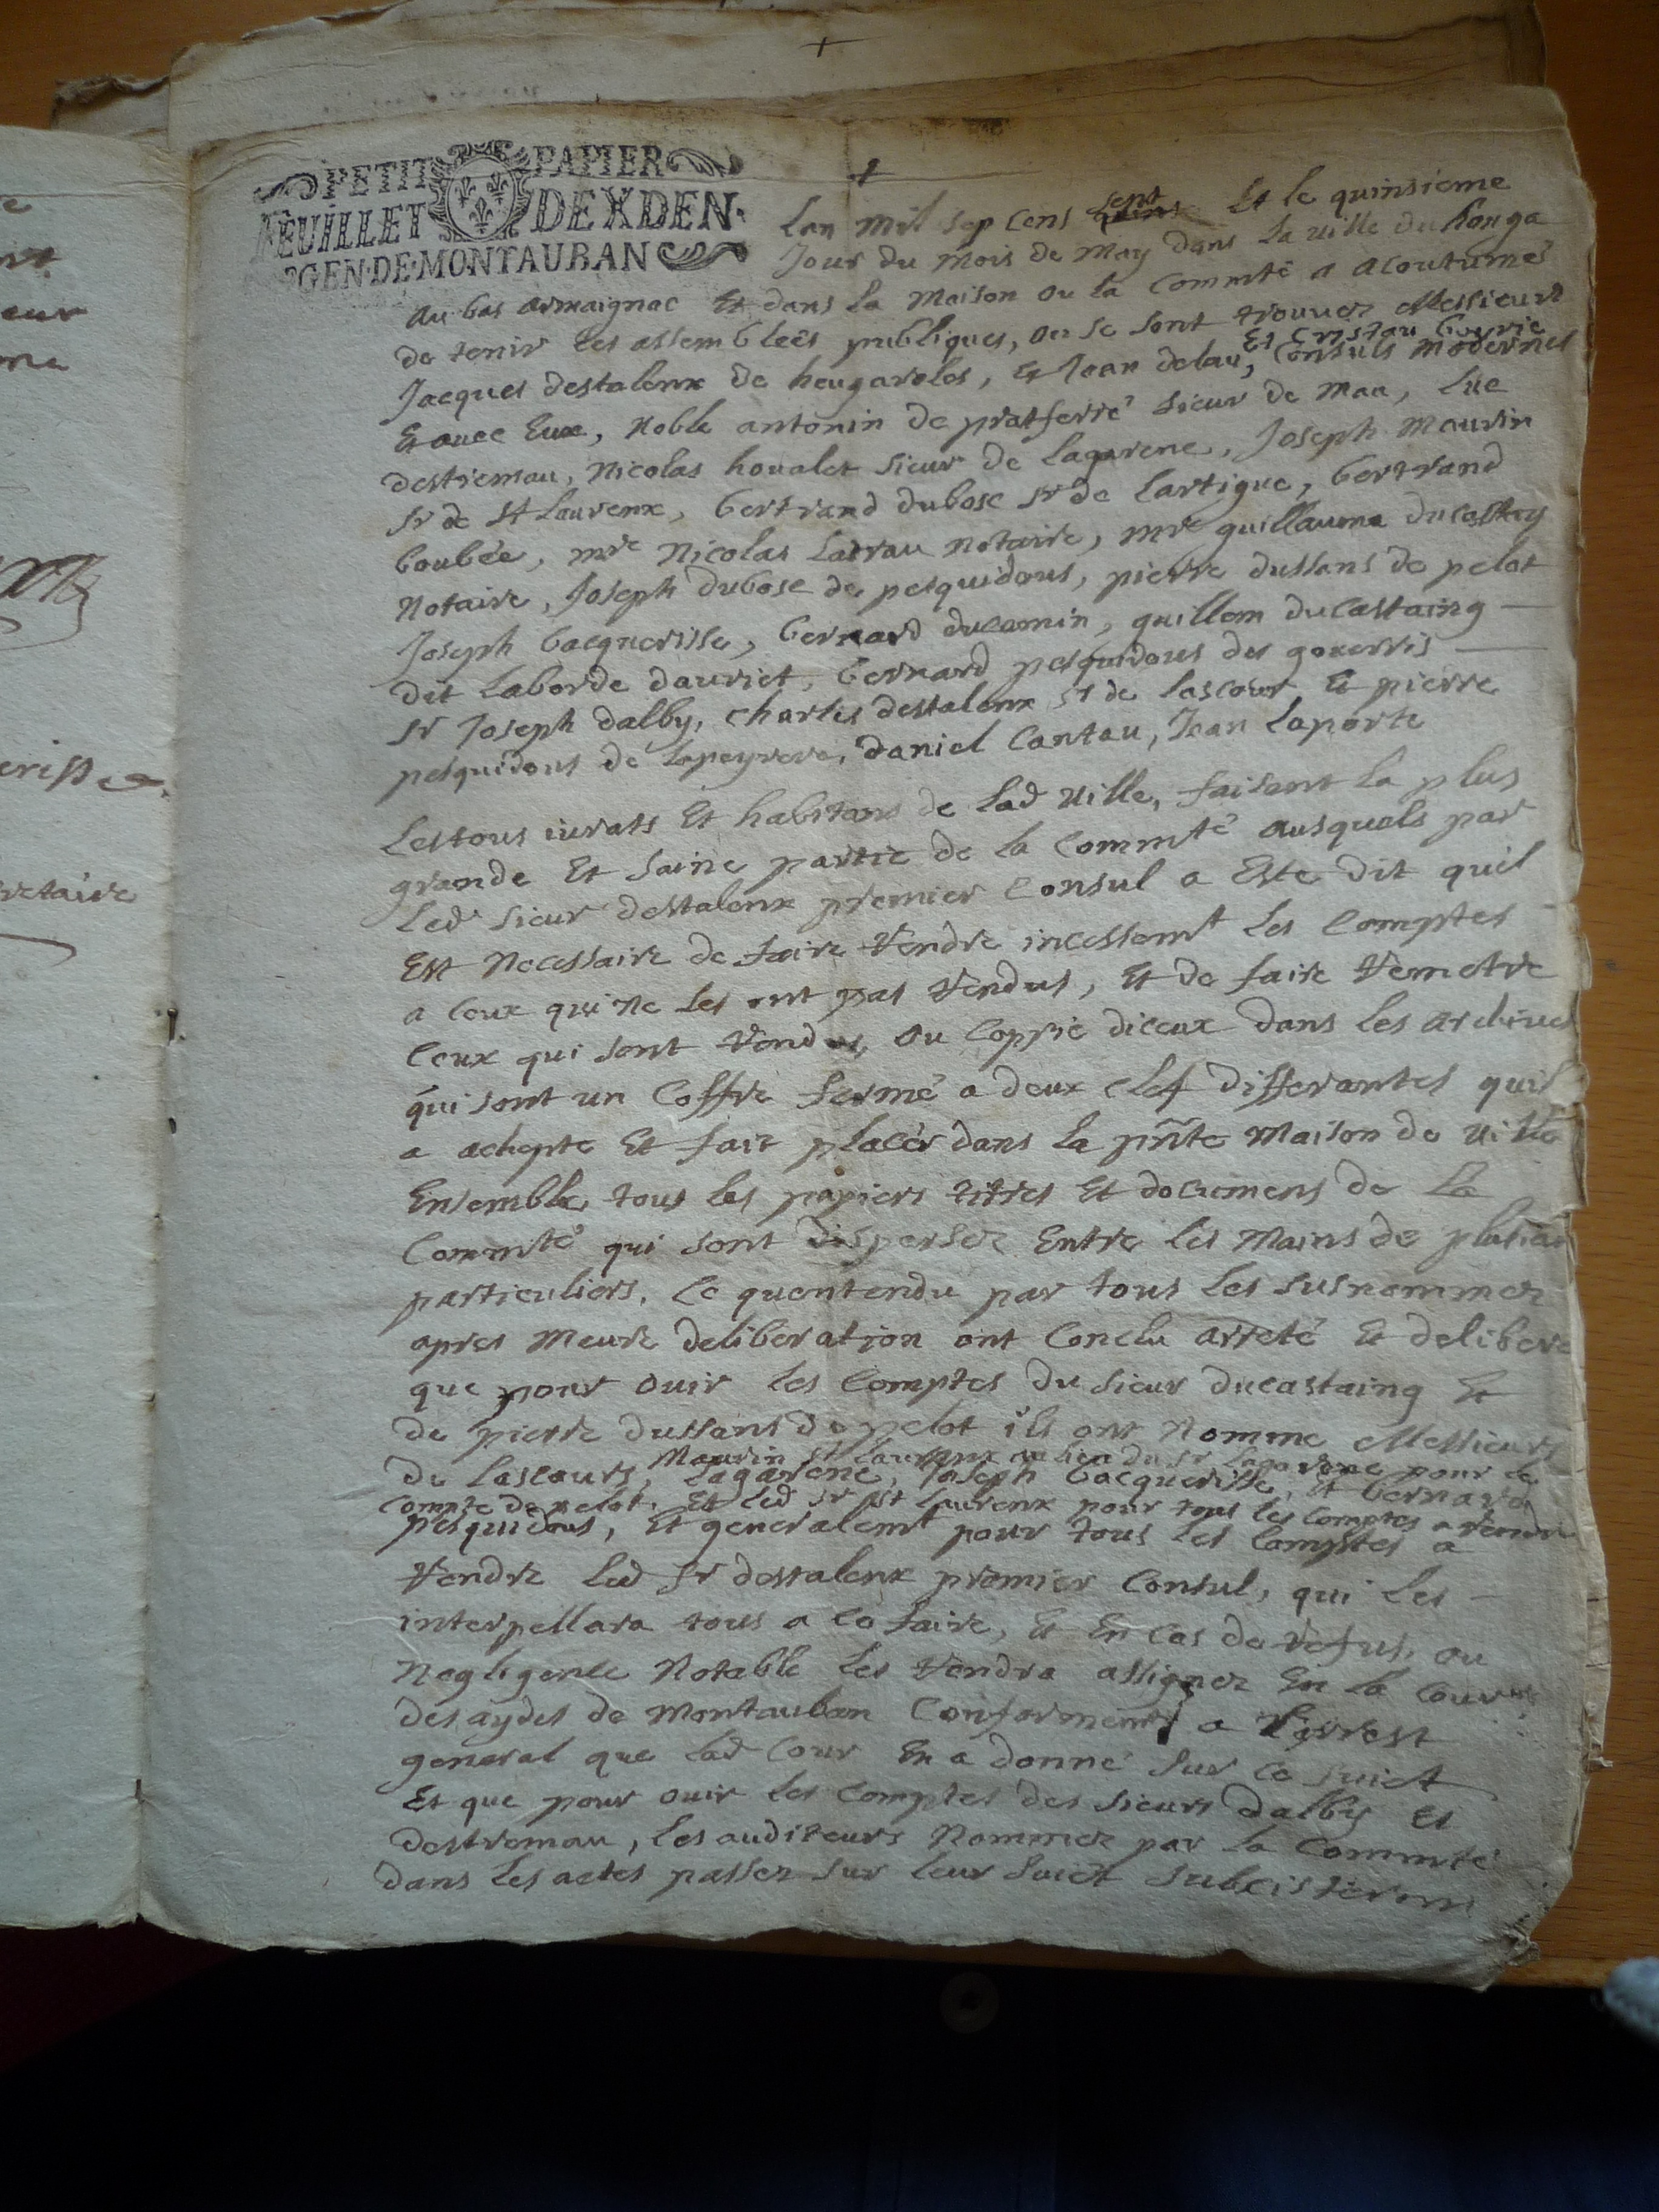 PETIT PAPIER
FEUILLET DEXDEN.
GEN. DE. MONTAUBAN
Lan mil sep cens sept Et le quinsieme
Jour du mois de May dans la ville du houga
au bas armaignac Et dans la maison ou la Commté a acoutumés
de tenir les assembléés publiques, ou se sont trouves Messieurs
Jacques destalenx de heugaroles, Et Jean delau, Et Cristau Consuls modernes
Et avec Eux, Noble antonin de pratferré sieur de Maa, Luc
destremau, Nicolas houalet sieur de Lagarene, Joseph Maurin
sr de St Laurenx, bertrand dubosc sr de Lartigue, bertrand
boubée, mre Nicolas Ladrau notaire, mre guillaume ducastaing
Notaire, Joseph dubosc de pesquidous, pierre dussans de pelot
Joseph bacquerisse, bernard ducamin, guillem ducastaing
dit Laborde dauriet, bernard pesquidous des gouerris
sr Joseph dalby, charles destalenx sr de lascour, Et pierre
pesquidous de Lapeyrere, daniel Cantau, Jean Laporte
Lestous iurats Et habitans de Lad ville, faisant la plus
grande Et saine partie de la Commté ausquels par
Led sieur destalenx premier Consul a Este dit quil
Est Necessaire de faire rendre incessemt Les Comptes
a Ceux qui Ne les ont pas rendus, Et de faire remetre
Ceux qui sont rendus, ou Coppie diceux dans les archives
qui sont un Coffre fermé a deux clef differantes quil
a achepte Et fait placer dans la pnte Maison de ville
Ensemble tous les papiers titres Et documens de La
Commté qui sont disperser Entre les Mains de plusieurs
particuliers, Ce quentendu par tous Les susnommez
apres Meure deliberation ont Conclu arreté Et delibere
que pour ouir les Comptes du sieur ducastaing Et
de pierre dussans de pelot ils ont Nomme Messieurs
Maurin St Laurenx au lieu du sr Lagarene pour le
de Lascours, Lagarene, Joseph bacquerisse, Et bernard
Compte de pelot, Et Led sr St Laurenx pour tous les Comptes a rendre
pesquidous, Et generalemt pour tous les Comptes a
rendre Led sr destalenx premier Consul, qui Les
interpellara tous a Le faire, Et En Cas de refus, ou
Negligence Notable Les rendra assigner En La Cour
des aydes de Montauban Conformemt a Larrest
general que Lad Cour En a donné Sur Ce Suiet
Et que pour ouir les Comptes des sieurs dalby Et
destremau, Les auditeurs Nommez par la Commté
dans Les actes passez Sur Leur Suiet Subcisteron